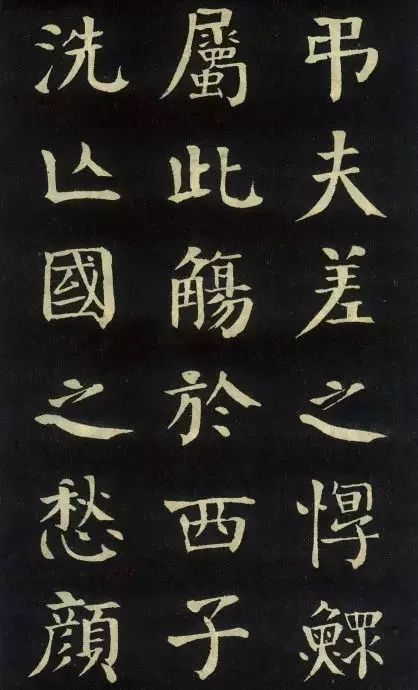 弔夫差之惸鰥
屬此觴於西子
洗亡國之愁顏